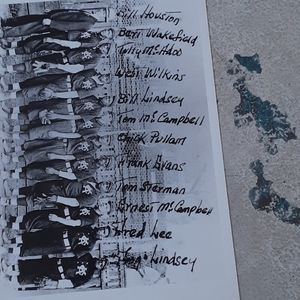 Bill Houston
Bert Wakefield
Tully McAdoo
West Wilkins
Bill Lindsey
Tom McCampbell
Chick Pullam
Frank Evans
Tom Sterman
Ernest McCampbell
Fred Lee
Lindsey